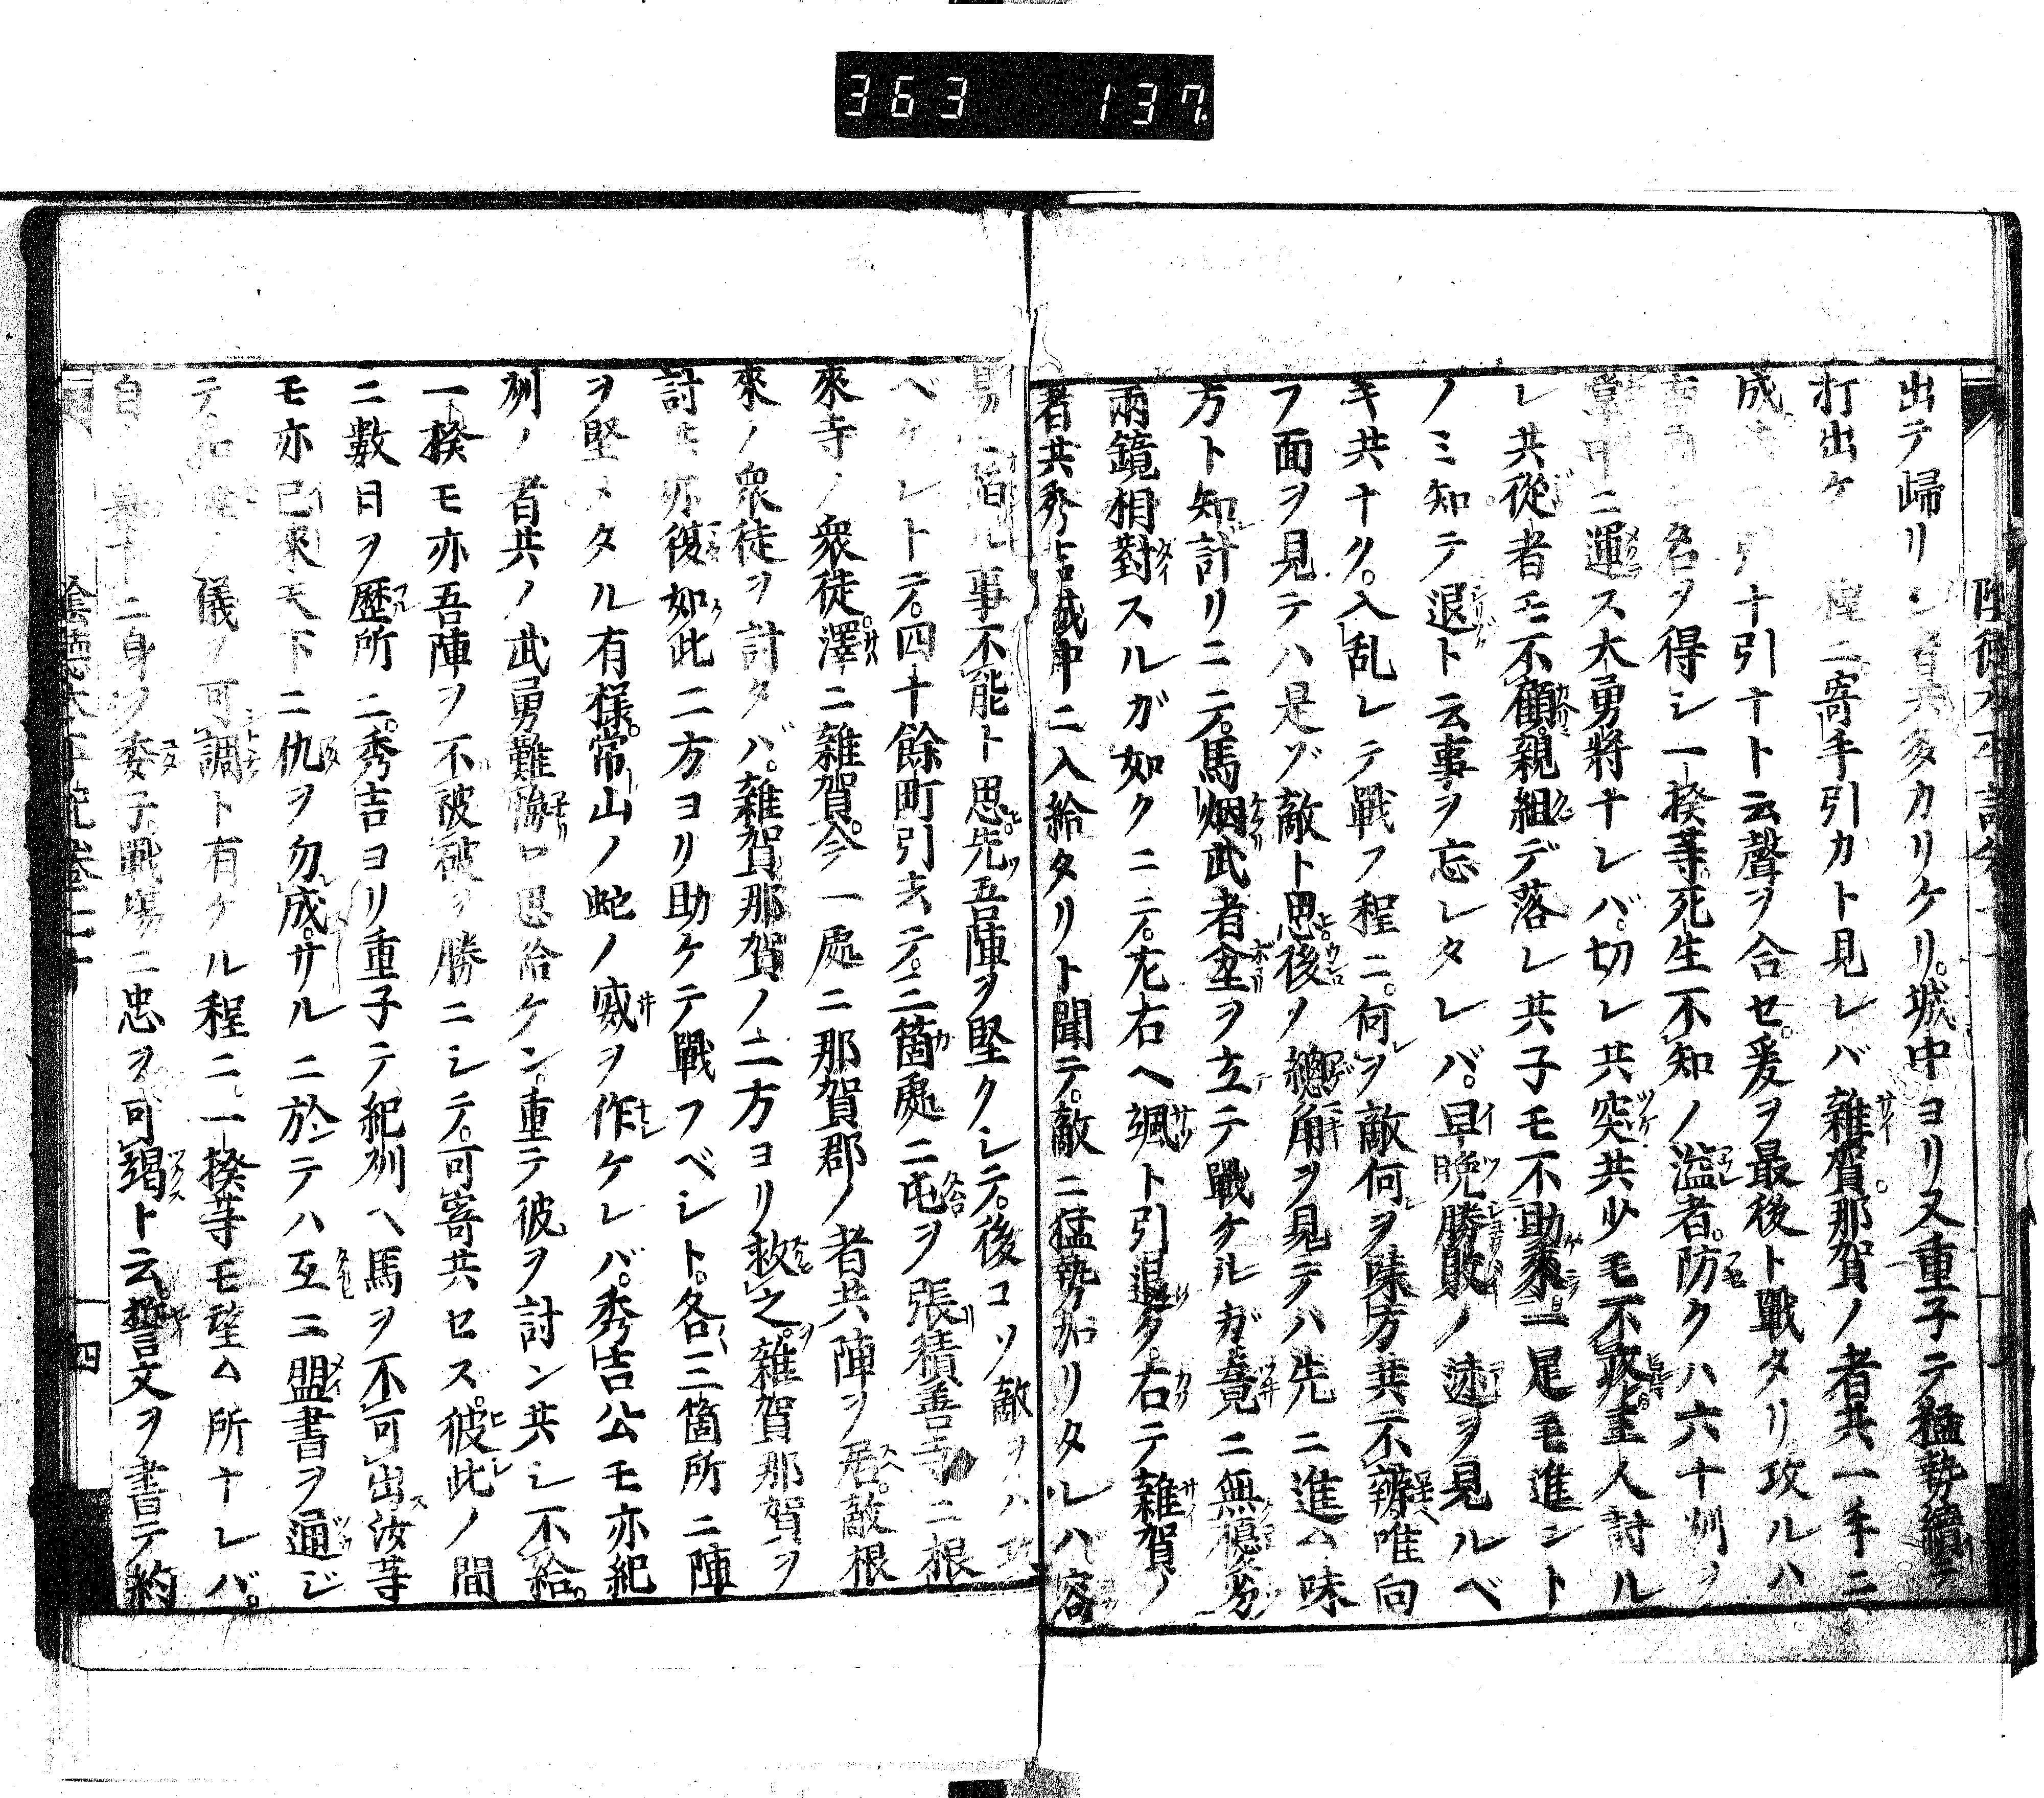 363 137
出テ歸リシ者共多カリケリ。城中ヨリ又重子テ猛勢續テ
打出ケ 陣ニ寄手引カト見レバ雜賀。那賀ノ者共一手ニ
成 引ナ引ナト云聲ヲ合セ。爰ヲ最後ト戰タリ攻ルハ
名ヲ得シ一揆等。死生不知ノ溢者。防クハ六十州ノ
掌中ニ運ス大勇將ナレバ。切レ共突共少モ不敢主人討ル
レ共從者モ不顧。親組デ落レ共子モ不助乘一足モ進シト
ノミ知テ退ト云事ヲ忘レタレバ。早晩勝敗ノ迹ヲ見ルベ
キ共ナク。入乱レテ戰フ程ニ。何ヲ敵何ヲ味方共不辨。唯向
フ面ヲ見テハ是ゾ敵ト思後ノ總角ヲ見テハ先ニ進ム味
方ト知計リニテ。馬烟武者埃ヲ立テ戰ケルガ竟ニ無優劣
兩鏡相對スルガ如クニテ。左右ヘ颯ト引退タ。右テ雜賀ノ
者共秀吉城中ニ入給タリト聞テ。敵ニ猛勢加リタルハ容
易陷ル事不能ト思先吾陣ヲ堅クシテ。後コソ敵ヲハ攻
ベケレトテ。四十餘町引去テ。三箇處ニ屯ヲ張積善寺ニ根
來寺ノ衆徒。澤ニ雜賀。今一處ニ那賀郡ノ者共陣ヲ居。敵根
來ノ衆徒ヲ討タバ。雜賀那賀ノ二方ヨリ救之。雜賀那賀ヲ
討共亦復如此二方ヨリ助ケテ戰フベシト。各三箇所ニ陣
ヲ堅メタル有樣。常山ノ蛇ノ威ヲ作ケレバ。秀吉公モ亦紀
州ノ者共ノ武勇難侮ク思給ケン。重テ彼ヲ討ン共シ不給。
一揆モ亦吾陣ヲ不被破ヲ勝ニシテ。可寄共セズ。彼此ノ間
ニ數日ヲ歷所ニ。秀吉ヨリ重子テ紀州ヘ馬ヲ不可出汝等
モ亦已來天下ニ仇ヲ勿成。サルニ於テハ互ニ盟書ヲ通ジ
テ。和睦ノ儀ヲ可調ト有ケル程ニ。一揆等モ望ム所ナレバ。
自 幕下ニ身ヲ委子戰場ニ忠ヲ可竭ト云。誓文ヲ書テ約
陰德太平記卷七十 四